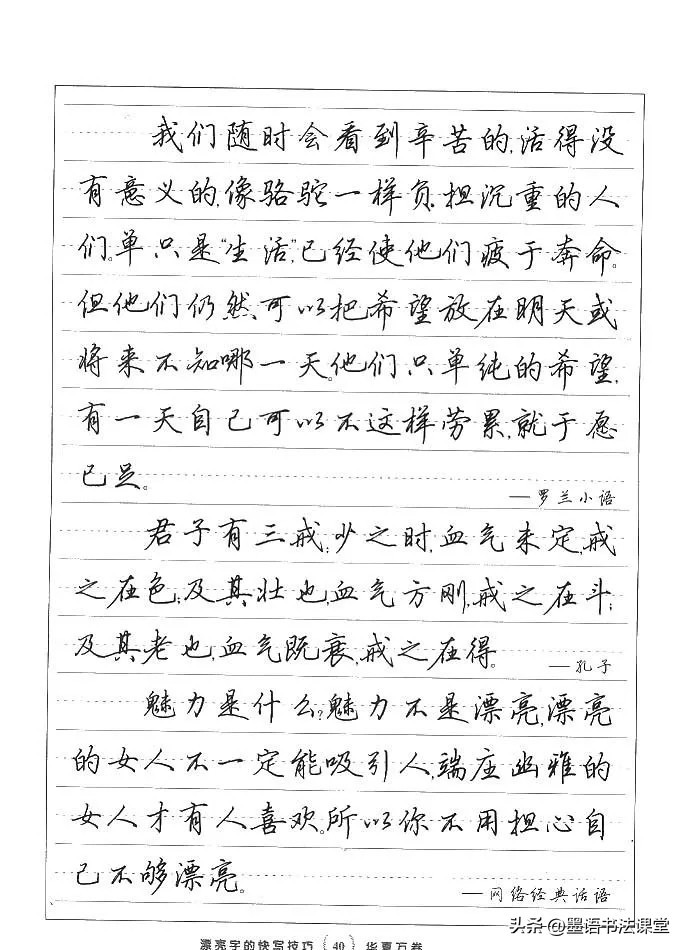 我们随时会看到辛苦的,活得没
有意义的,像骆驼一样负担沉重的人
们。单只是“生活”,已经使他们疲于奔命。
但他们仍然可以把希望放在明天或
将来不知哪一天。他们只单纯的希望,
有一天自己可以不这样劳累,就于愿
已足。
—罗兰小语
君子有三戒:少之时,血气未定,戒
之在色;及其壮也,血气方刚,戒之在斗;
及其老也,血气既衰,戒之在得。
—孔子
魅力是什么?魅力不是漂亮,漂亮
的女人不一定能吸引人,端座幽雅的
女人才有人喜欢。所以你不用担心自
己不够漂亮。
—网络经典话语
漂亮字的快写技巧 40 华夏万卷
头条@墨语书法课堂